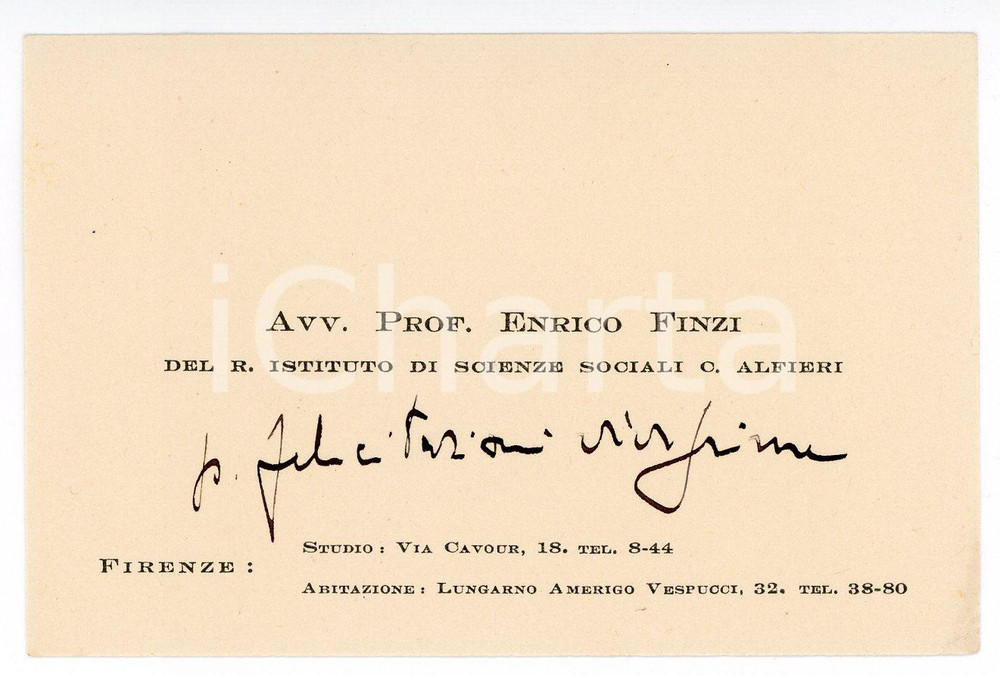 AVV. PROF. ENRICO FINZI
DEL R. ISTITUTO DI SCIENZE SOCIALI C. ALFIERI
p. felicitazioni vivissime
FIRENZE :
STUDIO : VIA CAVOUR, 18. TEL. 8-44
ABITAZIONE : LUNGARNO AMERIGO VESPUCCI, 32. TEL. 38-80
iCharta